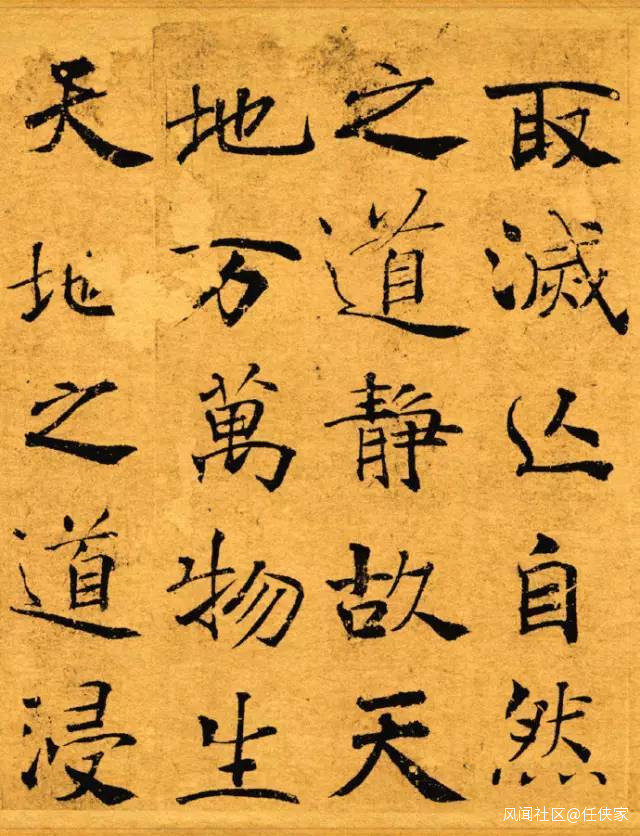 取滅亾自然
之道靜故天
地万萬物生
天地之道浸
风闻社区@任侠家